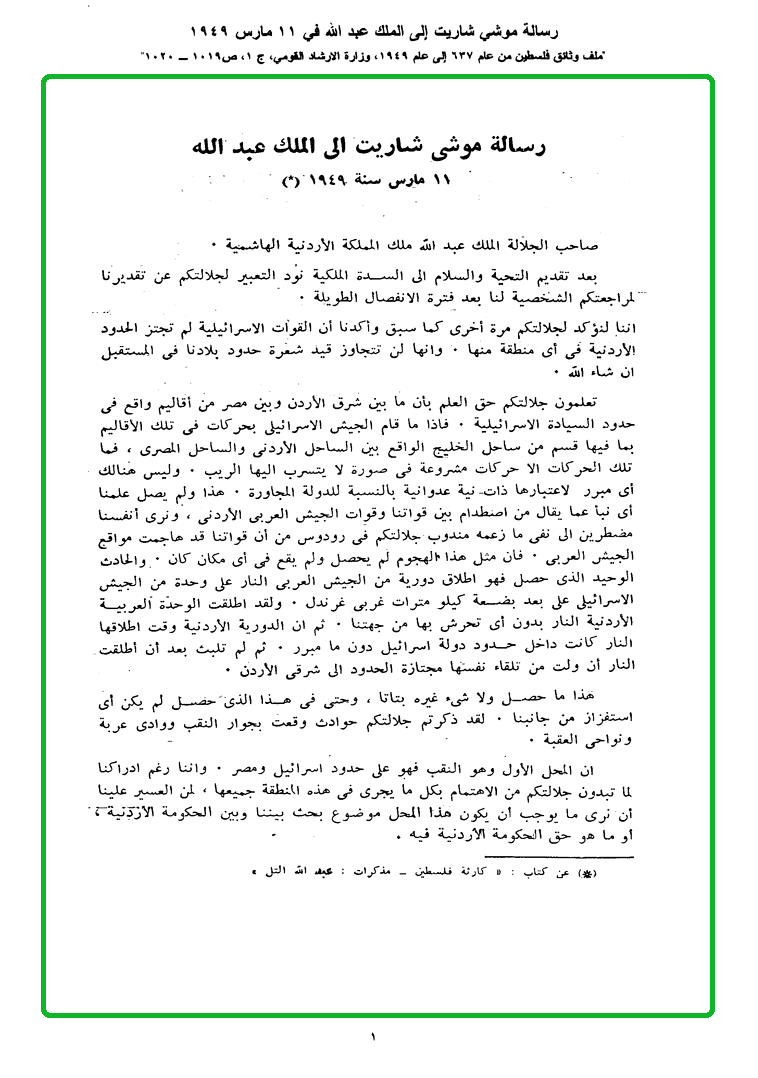 رسالة موشي شاريت إلى الملك عبد الله في ١١ مارس ١٩٤٩
"ملف وثائق فلسطين من عام ٦٣٧ إلى عام ١٩٤٩، وزارة الارشاد القومي، ج ١، ص ١٠١٩ – ١٠٢٠"
رسالة موشى شاريت الى الملك عبد الله
١١ مارس سنة ١٩٤٩ (*)
صاحب الجلالة الملك عبد الله ملك المملكة الأردنية الهاشمية ٠
بعد تقديم التحية والسلام الى السدة الملكية نود التعبير لجلالتكم عن تقديرنا
لمراجعتكم الشخصية لنا بعد فترة الانفصال الطويلة ٠
اننا لنؤكد لجلالتكم مرة أخرى كما سبق وأكدنا أن القوات الاسرائيلية لم تجتز الحدود
الأردنية فى أى منطقة منها ٠ وانها لن تتجاوز قيد شعرة حدود بلادنا فى المستقبل
ان شاء الله ٠
تعلمون جلالتكم حق العلم بأن ما بين شرق الأردن وبين مصر من أقاليم واقع فى
حدود السيادة الاسرائيلية ٠ فاذا ما قام الجيش الاسرائيلى بحركات فى تلك الأقاليم
بما فيها قسم من ساحل الخليج الواقع بين الساحل الأردنى والساحل المصرى ، فما
تلك الحركات الا حركات مشروعة فى صورة لا يتسرب اليها الريب ٠ وليس هنالك
أى مبرر لاعتبارها ذات نية عدوانية بالنسبة للدولة المجاورة ٠ هذا ولم يصل علمنا
أى نبأ عما يقال من اصطدام بين قواتنا وقوات الجيش العربى الأردنى ، ونرى أنفسنا
مضطرين الى نفى ما زعمه مندوب جلالتكم فى رودوس من أن قواتنا قد هاجمت مواقع
الجيش العربى ٠ فان مثل هذا الهجوم لم يحصل ولم يقع فى أى مكان كان ٠ والحادث
الوحيد الذى حصل فهو اطلاق دورية من الجيش العربى النار على وحدة من الجيش
الاسرائيلى على بعد بضعة كيلو مترات غربى غرندل ٠ ولقد اطلقت الوحدة العربية
الأردنية النار بدون أى تحرش بها من جهتنا ٠ ثم ان الدورية الأردنية وقت اطلاقها
النار كانت داخل حدود دولة اسرائيل دون ما مبرر ٠ ثم لم تلبث بعد أن أطلقت
النار أن ولت من تلقاء نفسها مجتازة الحدود الى شرقى الأردن ٠
هذا ما حصل ولا شىء غيره بتاتا ، وحتى فى هذا الذى حصل لم يكن أى
استفزاز من جانبنا ٠ لقد ذكرتم جلالتكم حوادث وقعت بجوار النقب ووادى عربة
ونواحى العقبة ٠
ان المحل الأول وهو النقب فهو على حدود اسرائيل ومصر ٠ واننا رغم ادراكنا
لما تبدون جلالتكم من الاهتمام بكل ما يجرى فى هذه المنطقة جميعها ، لمن العسير علينا
أن نرى ما يوجب أن يكون هذا المحل موضوع بحث بيننا وبين الحكومة الأردنية ،
أو ما هو حق الحكومة الأردنية فيه ٠
(*) عن كتاب : « كارثة فلسطين – مذكرات : عبد الله التل »
١